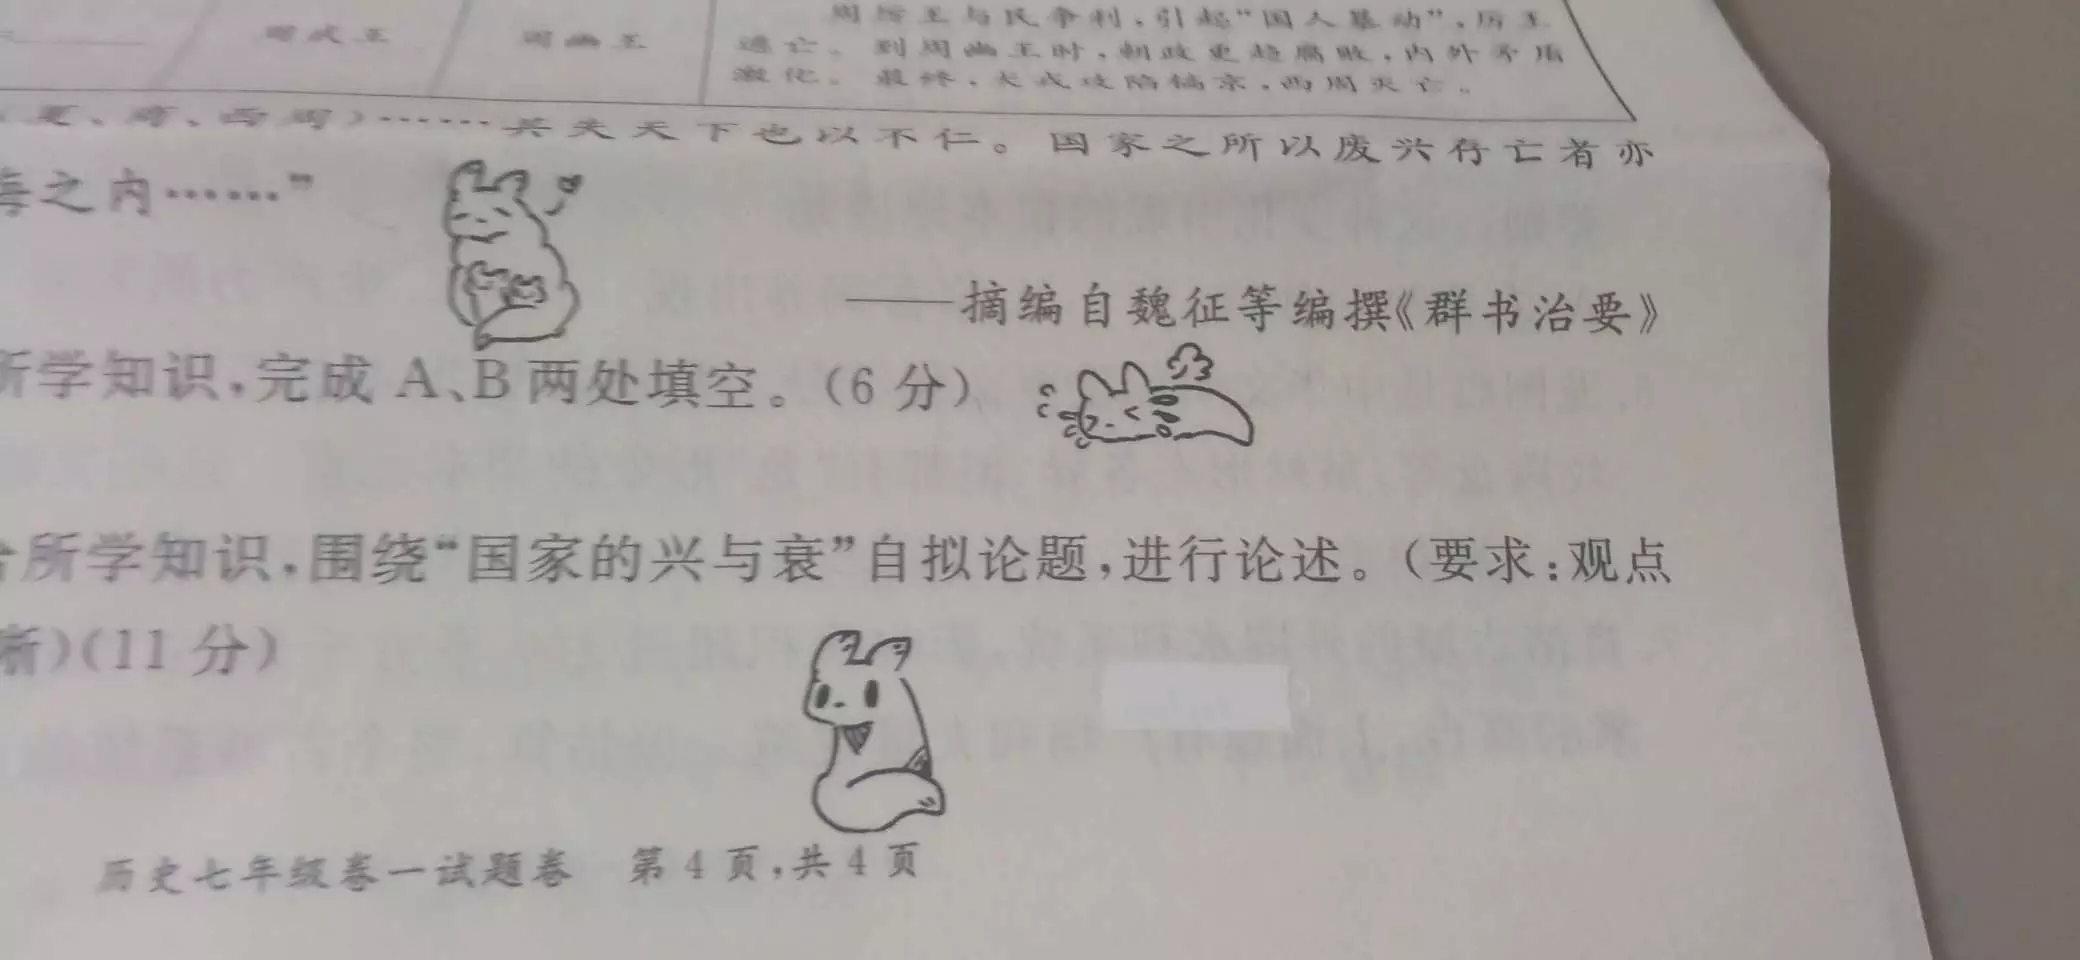 周厉王与民争利，引起“国人暴动”，厉王
周武王 周幽王 逃亡。到周幽王时，朝政更趋腐败，内外矛盾
激化。最终，犬戎攻陷镐京，西周灭亡。
（夏、商、西周）……其失天下也以不仁。国家之所以废兴存亡者亦
海之内……”
——摘编自魏征等编撰《群书治要》
所学知识，完成 A、B 两处填空。（6 分）
合所学知识，围绕“国家的兴与衰”自拟论题，进行论述。（要求：观点
晰）（11 分）
历史七年级卷一试题卷 第 4 页，共 4 页